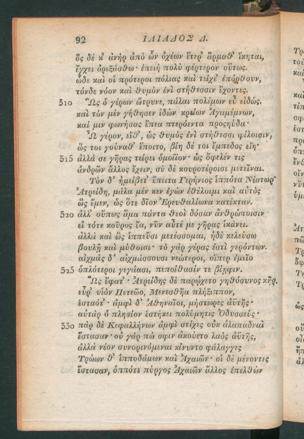 92 ΙΛΙΑΔΟΣ Δ.
ὃς δέ κ' ἀνὴρ ἀπὸ ὧν ὀχέων ἕτερ' ἅρμαθ' ἵκηται,
ἔγχει ὀρεξάσθω· ἐπειὴ πολὺ φέρτερον οὕτως.
ὧδε καὶ οἱ πρότεροι πόλιας καὶ τείχε' ἐπόρθουν,
τόνδε νόον καὶ θυμὸν ἐνὶ στήθεσσιν ἔχοντες.
310 Ὣς ὁ γέρων ὤτρυνε, πάλαι πολέμων εὖ εἰδώς.
καὶ τὸν μὲν γήθησεν ἰδὼν κρείων Ἀγαμέμνων,
καί μιν φωνήσας ἔπεα πτερόεντα προσηύδα·
Ὦ γέρον, εἴθ', ὡς θυμὸς ἐνὶ στήθεσσι φίλοισιν,
ὥς τοι γούναθ' ἕποιτο, βίη δέ τοι ἔμπεδος εἴη·
315 ἀλλά σε γῆρας τείρει ὁμοίϊον· ὡς ὄφελέν τις
ἀνδρῶν ἄλλος ἔχειν, σὺ δὲ κουροτέροισι μετεῖναι.
Τὸν δ' ἠμείβετ' ἔπειτα Γερήνιος ἱππότα Νέστωρ·
Ἀτρείδη, μάλα μέν κεν ἐγὼν ἐθέλοιμι καὶ αὐτὸς
ὣς ἔμεν, ὡς ὅτε δῖον Ἐρευθαλίωνα κατέκταν.
320 ἀλλ' οὔπως ἅμα πάντα θεοὶ δόσαν ἀνθρώποισιν·
εἰ τότε κοῦρος ἔα, νῦν αὖτέ με γῆρας ἱκάνει.
ἀλλὰ καὶ ὣς ἱππεῦσι μετέσσομαι, ἠδὲ κελεύσω
βουλῇ καὶ μύθοισι· τὸ γὰρ γέρας ἐστὶ γερόντων.
αἰχμὰς δ' αἰχμάσσουσι νεώτεροι, οἵπερ ἐμεῖο
325 ὁπλότεροι γεγάασι, πεποίθασίν τε βίηφιν.
Ὣς ἔφατ'· Ἀτρείδης δὲ παρῴχετο γηθόσυνος κῆρ.
εὗρ' υἱὸν Πετεῶο, Μενεσθῆα πλήξιππον,
ἑσταότ'· ἀμφὶ δ' Ἀθηναῖοι, μήστωρες ἀϋτῆς·
αὐτὰρ ὁ πλησίον ἑστήκει πολύμητις Ὀδυσσεύς·
330 πὰρ δὲ Κεφαλλήνων ἀμφὶ στίχες οὐκ ἀλαπαδναὶ
ἕστασαν· οὐ γάρ πώ σφιν ἀκούετο λαὸς ἀϋτῆς,
ἀλλὰ νέον συνορινόμεναι κίνυντο φάλαγγες
Τρώων θ' ἱπποδάμων καὶ Ἀχαιῶν· οἱ δὲ μένοντες
ἕστασαν, ὁππότε πύργος Ἀχαιῶν ἄλλος ἐπελθὼν